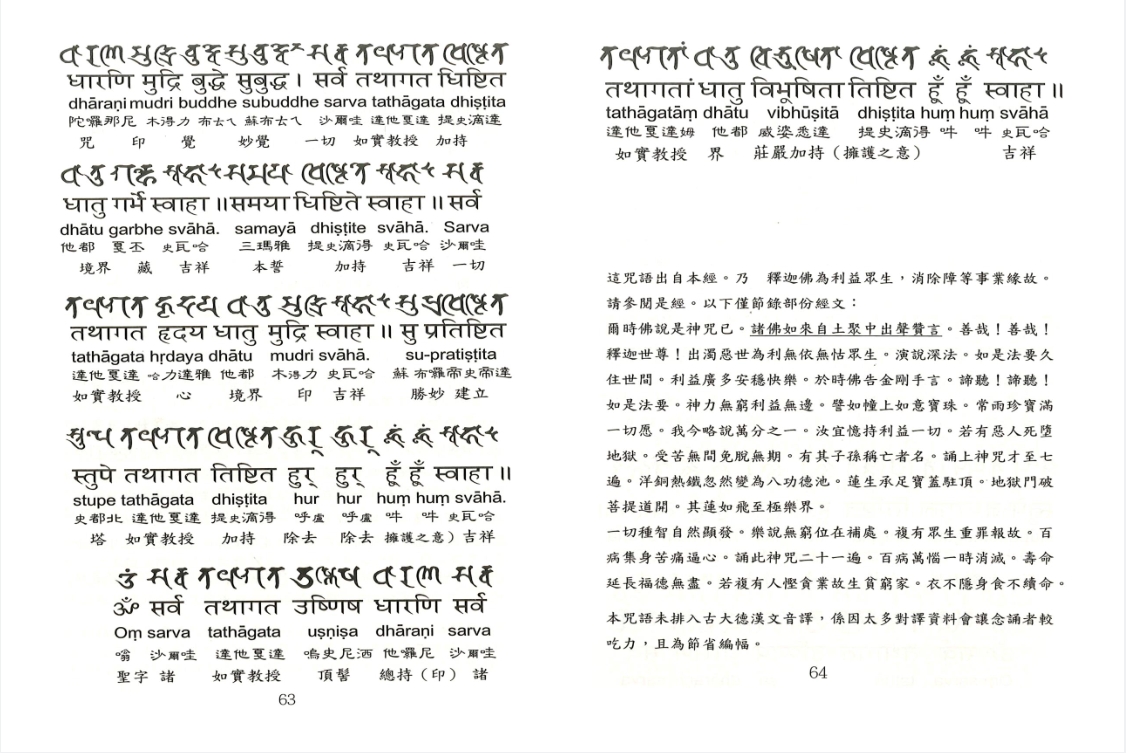 धारणि मुद्रि बुद्धे सुबुद्धे । सर्व तथागत धिष्टित
dhāraṇi mudri buddhe subuddhe sarva tathāgata dhiṣṭita
陀囉那尼 木得力 布去ㄟ 蘇布去ㄟ 沙爾哇 達他戛達 提史滴達
咒 印 覺 妙覺 一切 如實教授 加持
धातु गर्भे स्वाहा ॥ समया धिष्टिते स्वाहा ॥ सर्व
dhātu garbhe svāhā. samayā dhiṣṭite svāhā. Sarva
他都 戛丕 史瓦哈 三瑪雅 提史滴得 史瓦哈 沙爾哇
境界 藏 吉祥 本誓 加持 吉祥 一切
तथागत हृदय धातु मुद्रि स्वाहा ॥ सु प्रतिष्टित
tathāgata hṛdaya dhātu mudri svāhā. su-pratiṣṭita
達他戛達 哈力達雅 他都 木得力 史瓦哈 蘇 布囉帝史帝達
如實教授 心 境界 印 吉祥 勝妙 建立
स्तुपे तथागत तिष्टित हुर् हुर् हूँ हूँ स्वाहा ॥
stupe tathāgata dhiṣṭita hur hur huṃ huṃ svāhā.
史都北 達他戛達 提史滴得 呼盧 呼盧 吽 吽 史瓦哈
塔 如實教授 加持 除去 除去 擁護之意) 吉祥
ॐ सर्व तथागत उष्णिष धारणि सर्व
Oṃ sarva tathāgata uṣṇiṣa dhāraṇi sarva
嗡 沙爾哇 達他戛達 嗚史尼洒 他囉尼 沙爾哇
聖字 諸 如實教授 頂髻 總持(印) 諸
63
तथागतां धातु विभुषिता तिष्टित हूँ हूँ स्वाहा ॥
tathāgatāṃ dhātu vibhūṣitā dhiṣṭita huṃ huṃ svāhā
達他戛達姆 他都 威婆悉達 提史滴得 吽 吽 史瓦哈
如實教授 界 莊嚴加持(擁護之意) 吉祥
這咒語出自本經。乃 釋迦佛為利益眾生,消除障等事業緣故。
請參閱是經。以下僅節錄部份經文:
爾時佛說是神咒已。諸佛如來自土聚中出聲贊言。善哉!善哉!
釋迦世尊!出濁惡世為利無依無怙眾生。演說深法。如是法要久
住世間。利益廣多安穩快樂。於時佛告金剛手言。諦聽!諦聽!
如是法要。神力無窮利益無邊。譬如幢上如意寶珠。常雨珍寶滿
一切愿。我今略說萬分之一。汝宜憶持利益一切。若有惡人死墮
地獄。受苦無間免脫無期。有其子孫稱亡者名。誦上神咒才至七
遍。洋銅熱鐵忽然變為八功德池。蓮生承足寶蓋駐頂。地獄門破
菩提道開。其蓮如飛至極樂界。
一切種智自然顯發。樂說無窮位在補處。複有眾生重罪報故。百
病集身苦痛逼心。誦此神咒二十一遍。百病萬惱一時消滅。壽命
延長福德無盡。若複有人慳貪業故生貧窮家。衣不隱身食不續命。
本咒語未排入古大德漢文音譯,係因太多對譯資料會讓念誦者較
吃力,且為節省編幅。
64